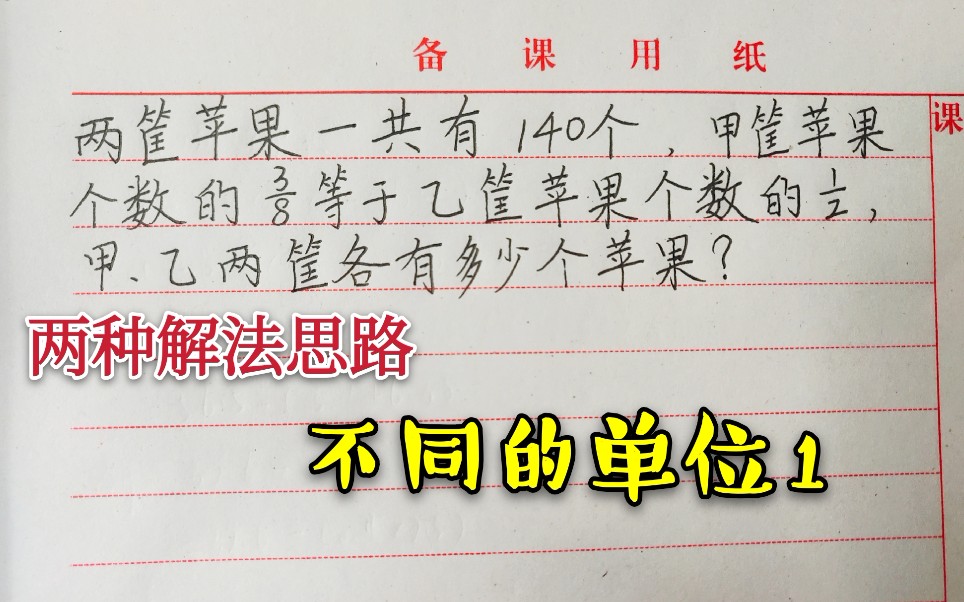 备课用纸
课
两筐苹果一共有140个，甲筐苹果
个数的3/8等于乙筐苹果个数的1/2，
甲、乙两筐各有多少个苹果？
两种解法思路
不同的单位1